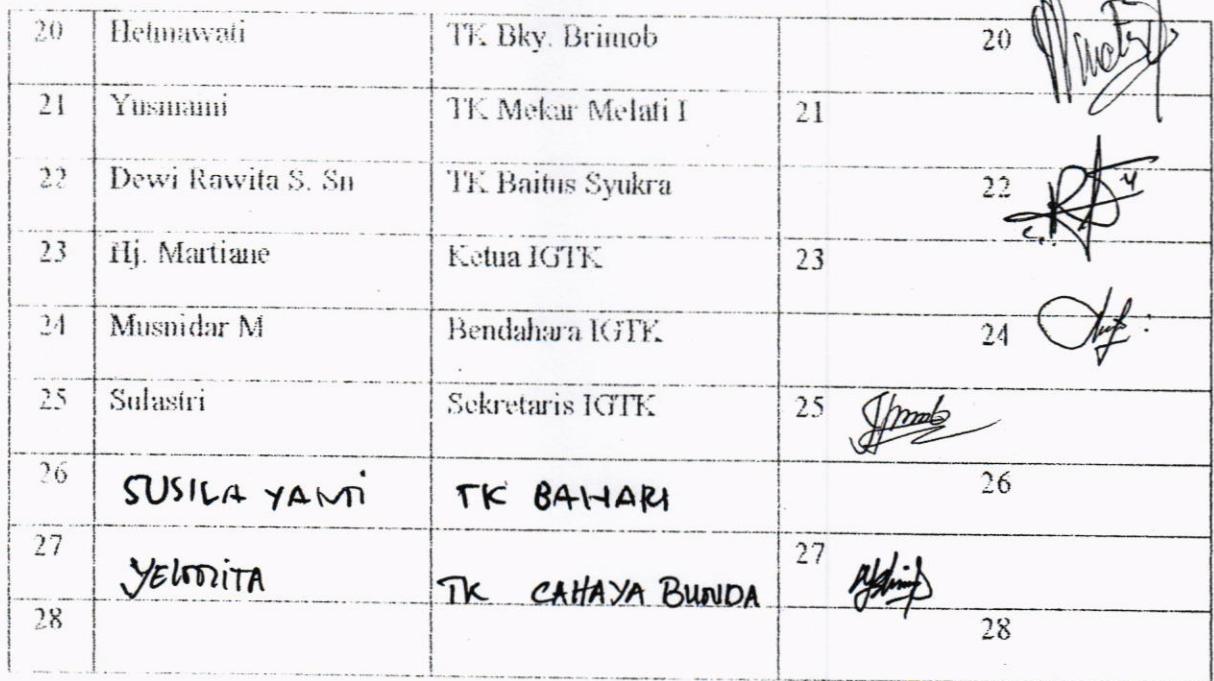 20 Helmawati TK Bky. Brimob 20
21 Yusmami TK Mekar Melati I 21
22 Dewi Rawita S. Sn TK Baitus Syukra 22
23 Hj. Martiane Ketua IGTK 23
24 Musnidar M Bendahara IGTK 24
25 Sulastri Sekretaris IGTK 25
26 SUSILA YANTI TK BAHARI 26
27 TK CAHAYA BUNDA 27
28 28